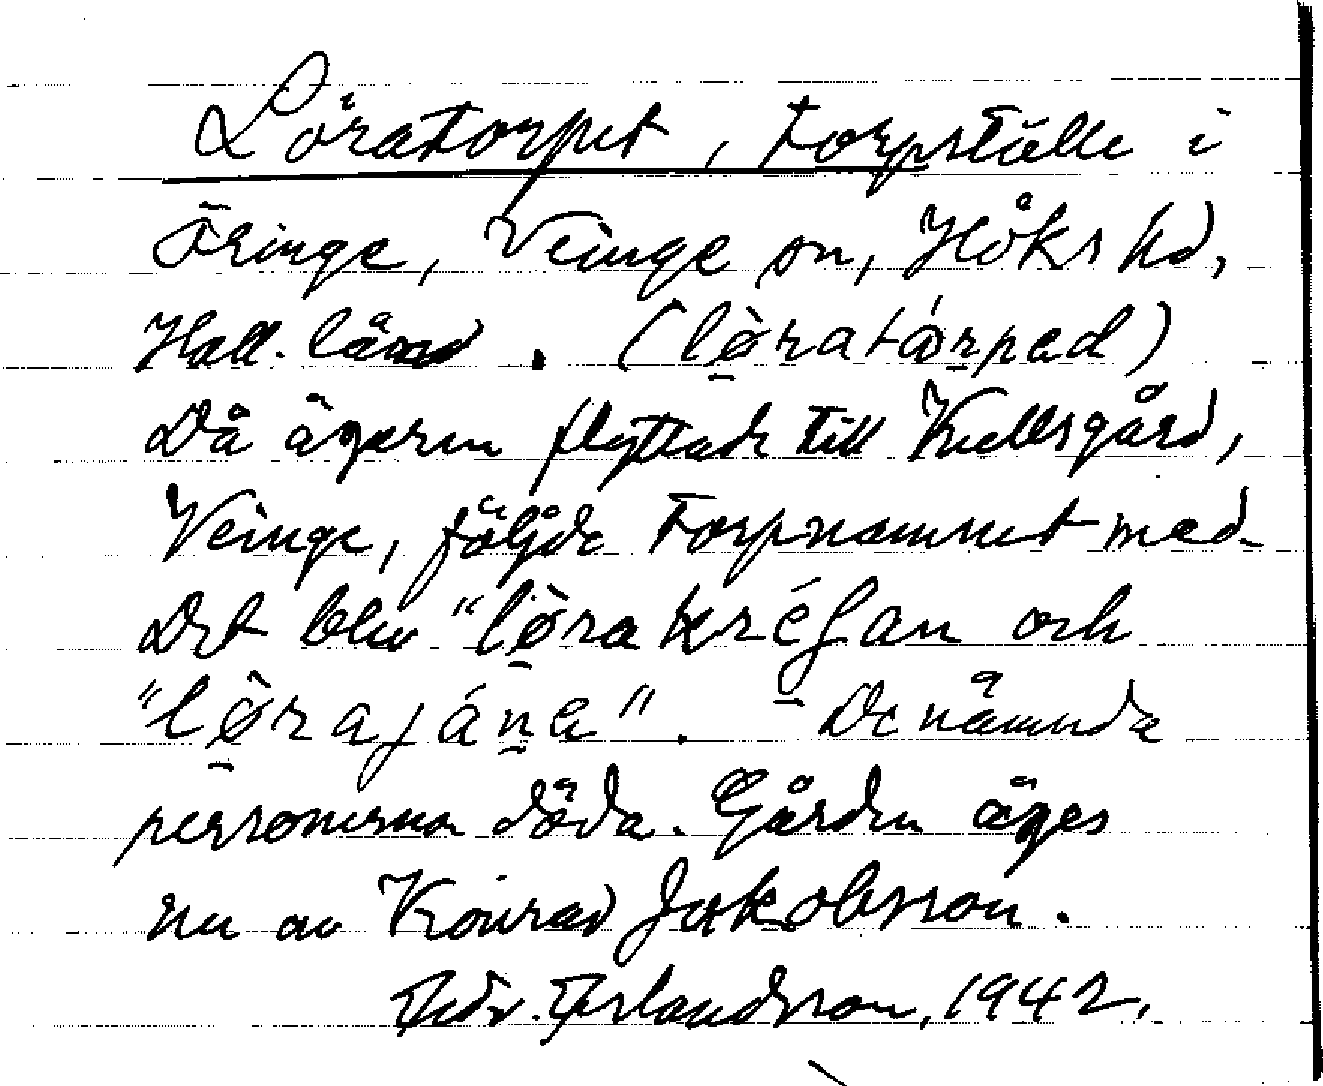 Löratorpet, torpställe i
Öringe, Veinge sn, Höks hd,
Hall. län. (lø̀ratárpad)
Då ägaren flyttade till Kullsgård,
Veinge, följde torpnamnet med.
Det blev "lø̀ra kréſan och
"lø̀rajána". De nämnda
personerna döda. Gården äges
nu av Konrad Jakobsson.
Edv. Erlandsson, 1942.